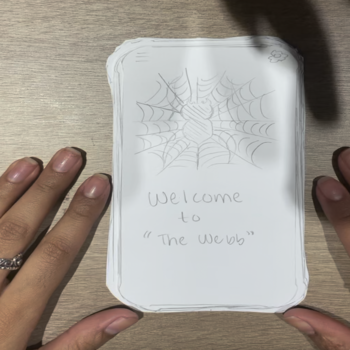 Welcome
to
"The Webb"